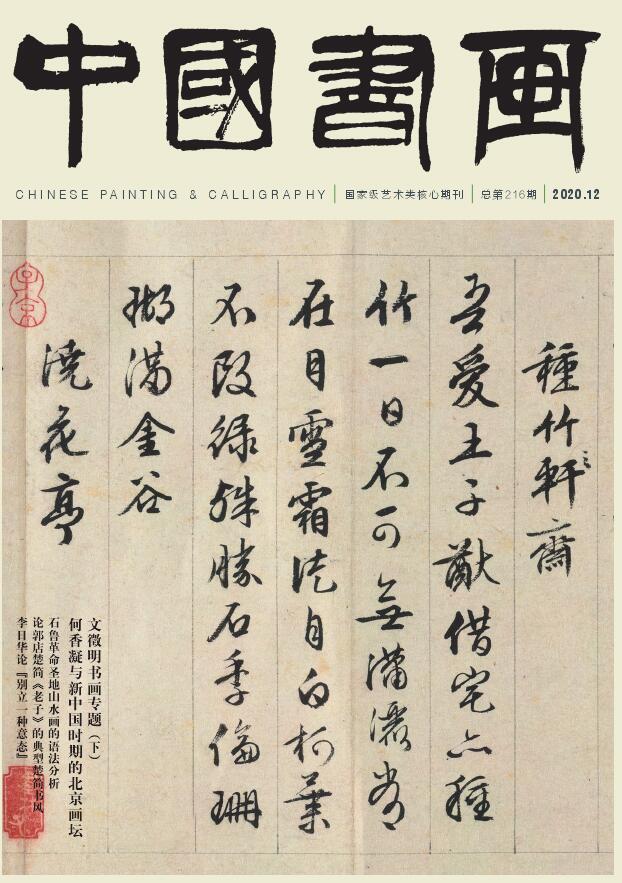 中國書画
CHINESE PAINTING & CALLIGRAPHY | 国家级艺术类核心期刊 | 总第216期 | 2020.12
種竹軒齋
吾愛王子猷借宅亦種
竹一日不可無瀟灑常
在目雪霜徒自白柯葉
不改綠殊勝石季倫珊
瑚滿金谷
澆花亭
文徵明书画专题（下）
何香凝与新中国时期的北京画坛
石鲁革命圣地山水画的语法分析
论郭店楚简《老子》的典型楚简书风
李日华论『别立一种意态』